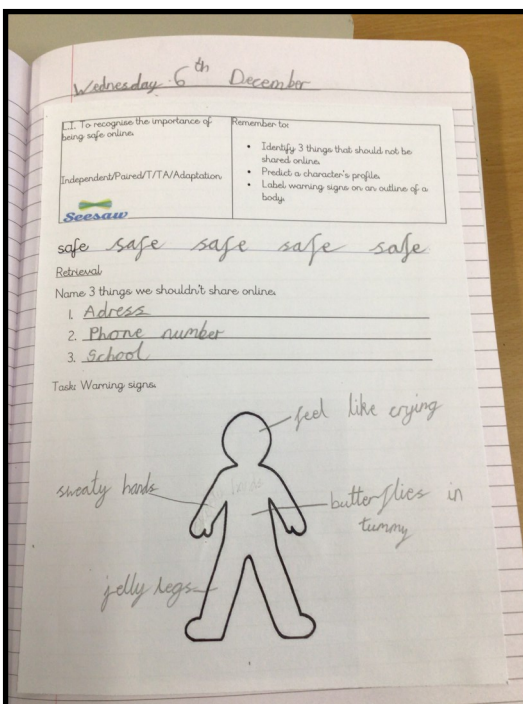 Wednesday 6th December
L.I. To recognise the importance of
being safe online.
Independent/Paired/T/TA/Adaptation
Seesaw
Remember to:
• Identify 3 things that should not be
shared online.
• Predict a character's profile.
• Label warning signs on an outline of a
body.
safe safe safe safe safe
Retrieval
Name 3 things we shouldn't share online.
1. Adress
2. Phone number
3. School
Task: Warning signs.
feel like crying
sweaty hands
butterflies in
tummy
jelly legs